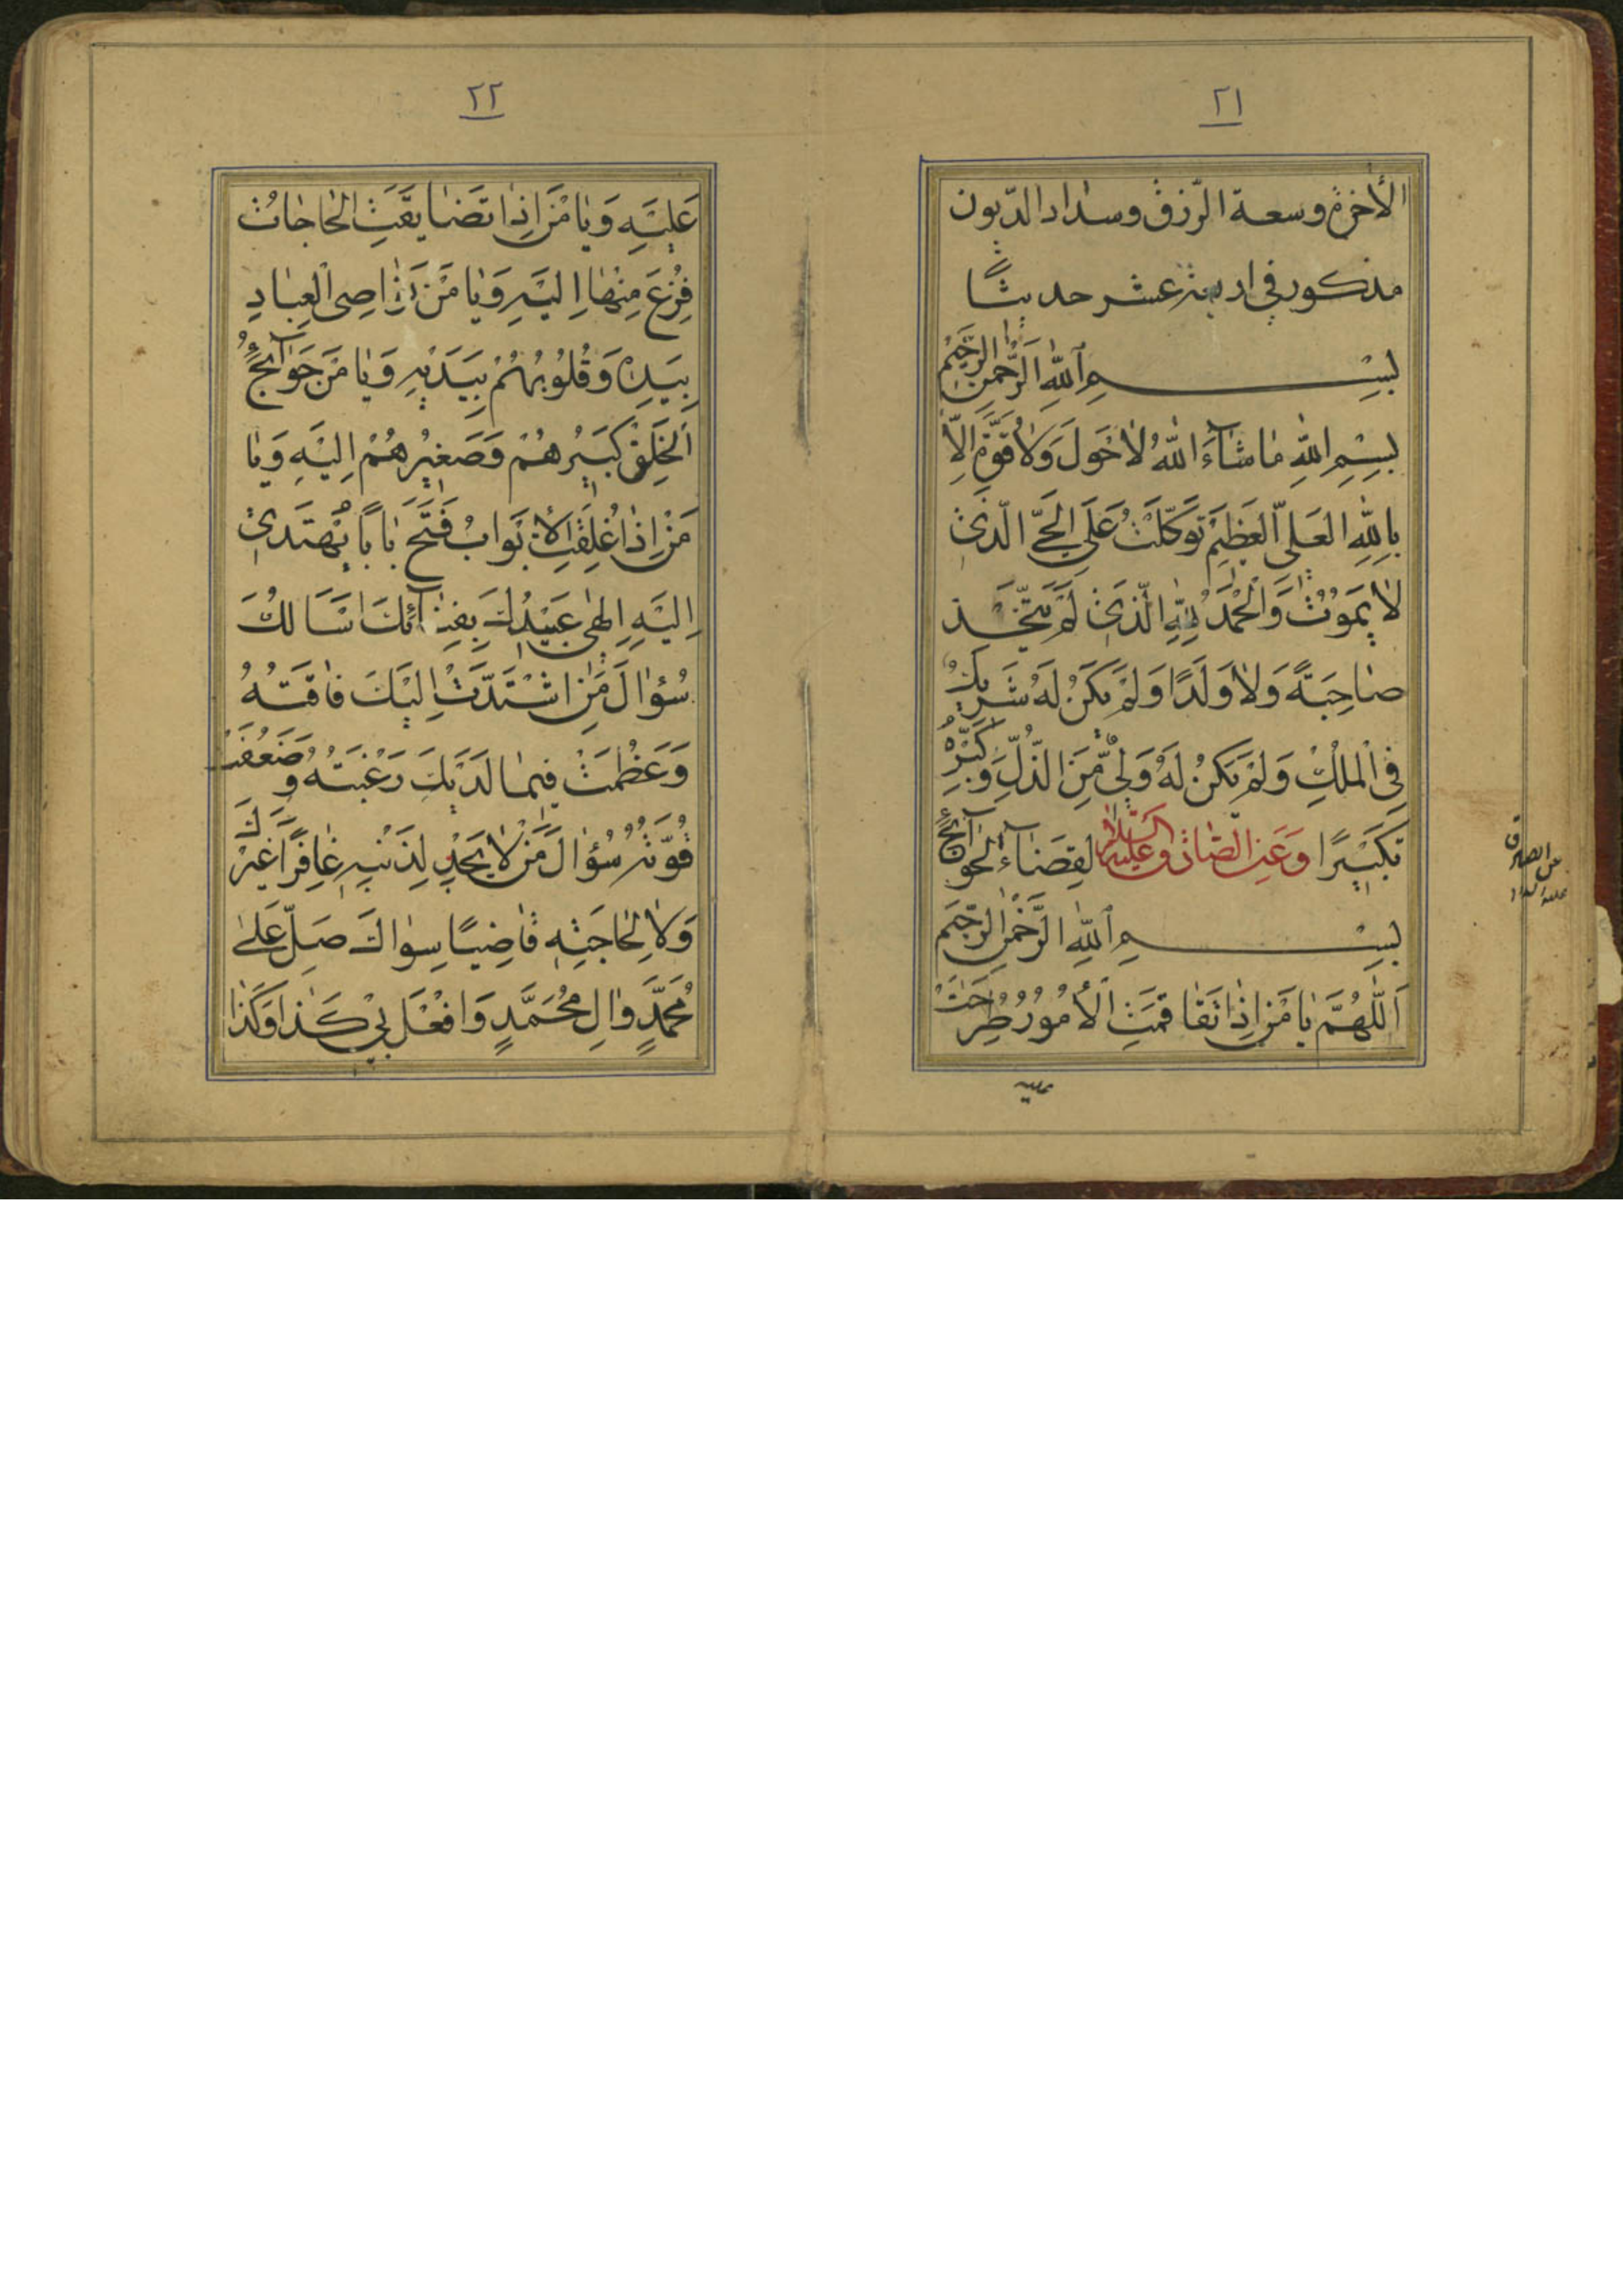 ٢١
الأخرة وسعة الرّزق وسداد الدّيون
مذكور في اربعة عشر حديثًا
بِسْمِ اللّٰهِ الرَّحْمٰنِ الرَّحِيْمِ
بِسْمِ اللّٰهِ مٰا شٰآءَ اللّٰهُ لٰا حَوْلَ وَلٰا قُوَّةَ اِلّٰا
بِاللّٰهِ الْعَلِىِّ الْعَظِيْمِ تَوَكَّلْتُ عَلَى الْحَىِّ الَّذِىْ
لٰا يَمُوْتُ وَالْحَمْدُ لِلّٰهِ الَّذِىْ لَمْ يَتَّخِذْ
صٰاحِبَةً وَلٰا وَلَدًا وَلَمْ يَكُنْ لَهُ شَرِيْكٌ
فِى الْمُلْكِ وَلَمْ يَكُنْ لَهُ وَلِىٌّ مِنَ الذُّلِّ وَكَبِّرْهُ
تَكْبِيْرًا وَعَنِ الصّٰادِقِ عَلَيْهِ السَّلٰامُ لِقَضٰاءِ الْحَوٰآئِجِ
بِسْمِ اللّٰهِ الرَّحْمٰنِ الرَّحِيْمِ
اَللّٰهُمَّ يٰا مَنْ اِذٰا تَفٰاقَمَتِ الْاُمُوْرُ طُرِحَتْ
عليه
عن الصادق
عليه السلام
٢٢
عَلَيْهِ وَيٰا مَنْ اِذٰا تَضٰايَقَتِ الْحٰاجٰاتُ
فُزِعَ مِنْهٰا اِلَيْهِ وَيٰا مَنْ نَوٰاصِى الْعِبٰادِ
بِيَدِهِ وَقُلُوْبُهُمْ بِيَدَيْهِ وَيٰا مَنْ حَوٰآئِجُ
الْخَلْقِ كَبِيْرُهُمْ وَصَغِيْرُهُمْ اِلَيْهِ وَيٰا
مَنْ اِذٰا غُلِقَتِ الْاَبْوٰابُ فَتَحَ بٰابًا يُهْتَدىٰ
اِلَيْهِ اِلٰهِى عُبَيْدُكَ بِفِنٰآئِكَ اَسْاَلُكَ
سُؤٰالَ مَنِ اشْتَدَّتْ اِلَيْكَ فٰاقَتُهُ
وَعَظُمَتْ فِيْمٰا لَدَيْكَ رَغْبَتُهُ وَضَعُفَتْ
قُوَّتُهُ سُؤٰالَ مَنْ لٰا يَجِدُ لِذَنْبِهِ غٰافِرًا غَيْرَكَ
وَلٰا لِحٰاجَتِهِ قٰاضِيًا سِوٰاكَ صَلِّ عَلىٰ
مُحَمَّدٍ وَاٰلِ مُحَمَّدٍ وَافْعَلْ بِىْ كَذٰا وَكَذٰا